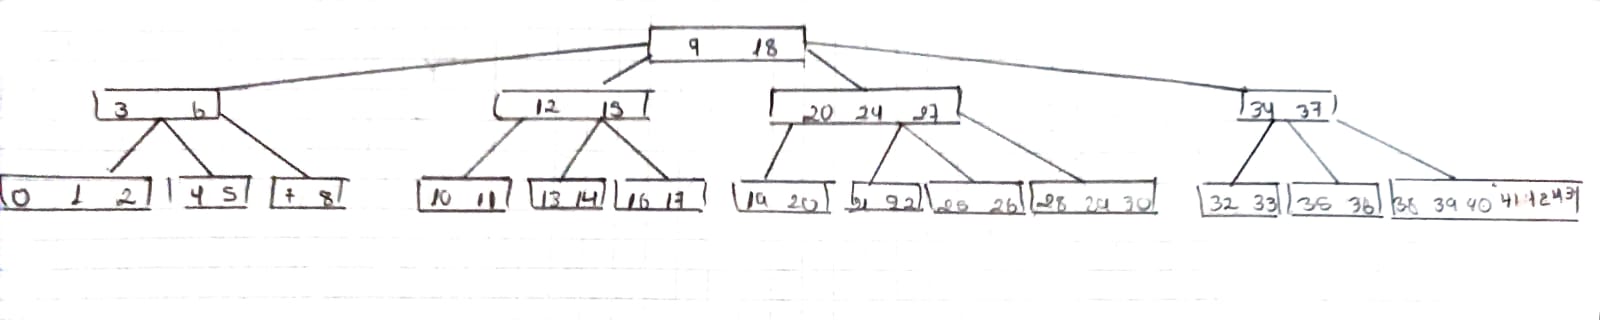 9 18
3 6 12 15 20 24 27 34 37
0 1 2 4 5 7 8 10 11 13 14 16 17 19 20 21 22 25 26 28 29 30 32 33 35 36 38 39 40 41 42 43